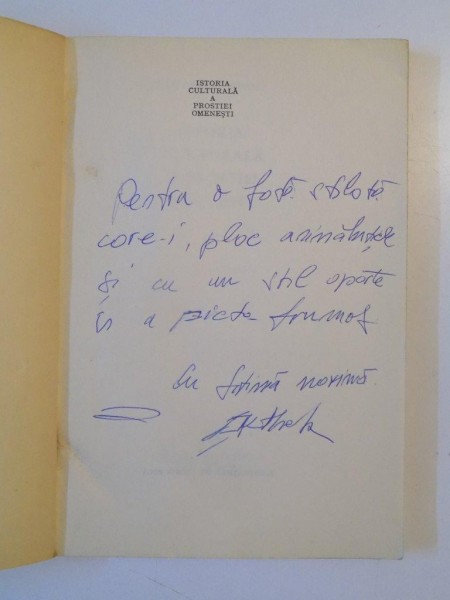 ISTORIA
CULTURALĂ
A
PROSTIEI
OMENEȘTI
Pentru o fată stilată
care-i, plac animăluțele
și cu un stil aparte
în a picta frumos
Cu stimă maximă